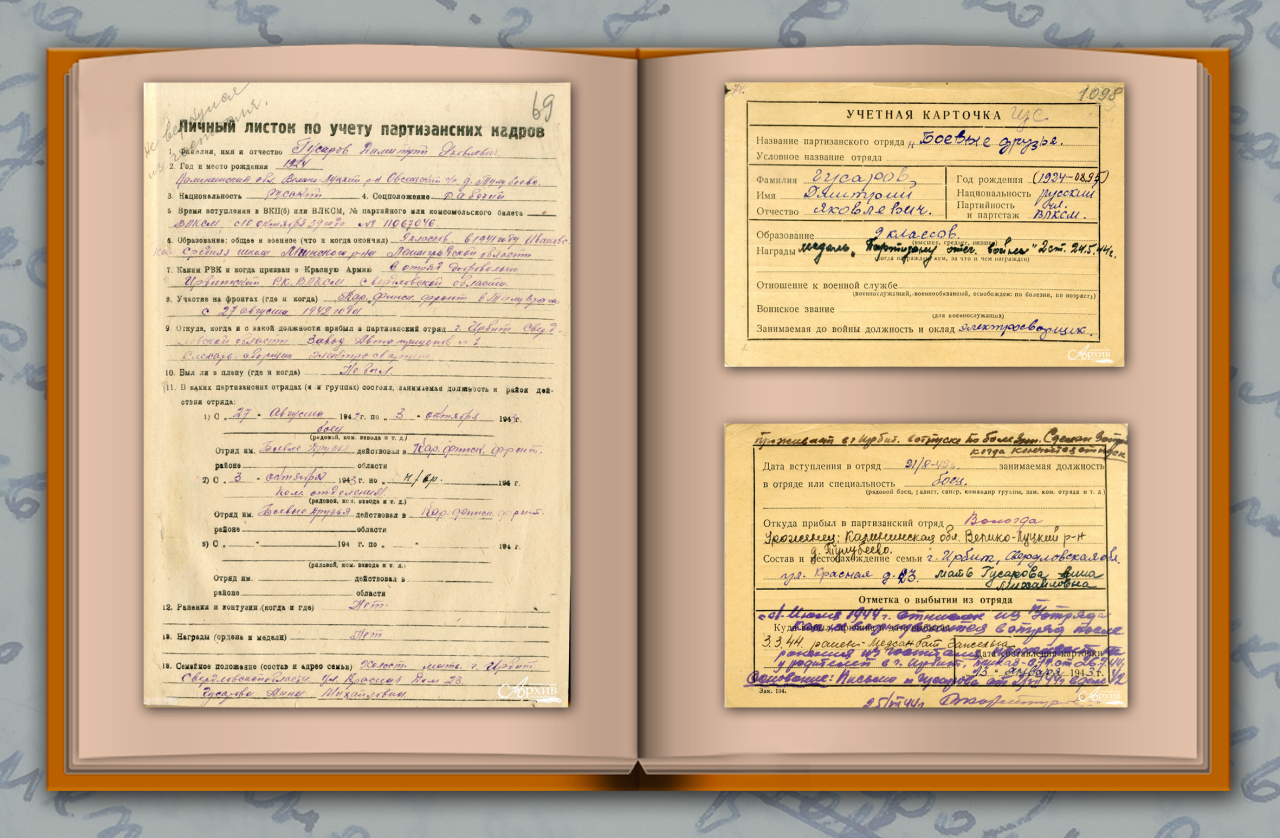 69
Личный листок по учету партизанских кадров
1. Фамилия, имя и отчество Гусаров Димитрий Яковлевич
2. Год и место рождения 1924
Калининская обл. Велико-Луцкий р-н д. Тулубьево.
3. Национальность Русский 4. Соцположение рабочий
5. Время вступления в ВКП(б) или ВЛКСМ, № партийного или комсомольского билета
ВЛКСМ с 10 октября 39 года № 11067046
6. Образование: общее и военное (что и когда окончил) 9 классов. в 1941 году
средняя школа Мгинского р-на Ленинградской области
7. Каким РВК и когда призван в Красную Армию в отряд добровольно
Ирбитский РК. ВЛКСМ Свердловской области.
8. Участие на фронтах (где и когда) Кар. финск. фронт в тылу врага
с 27 августа 1942 года
9. Откуда, когда и с какой должности прибыл в партизанский отряд г. Ирбит Сверд-
ловской области Завод Автоприцепов №
Слесарь сборщик электросварщик
10. Был ли в плену (где и когда) Не был
11. В каких партизанских отрядах (и м группах) состоял, занимаемая должность и район дей-
ствия отряда:
1) С „27 „ Августа 194 г. по „3 „ октября 194 г.
боец
(рядовой, ком. взвода и т. д.)
Отряд им. Боевые Друзья действовал в Кар. финск. фронт.
районе области
2) С „3 „ октября 1943 г. по н/вр. 194 г.
Ком. отделения
(рядовой, ком. взвода и т. д.)
Отряд им. Боевые Друзья действовал в Кар. финск. фронт.
районе области
3) С „ „ 194 г. по „ „ 194 г.
(рядовой, ком. взвода и т. д.)
Отряд им. действовал в
районе области
12. Ранения и контузии (когда и где) Нет
13. Награды (ордена и медали) Нет
13. Семейное положение (состав и адрес семьи) Холост. мать. г. Ирбит
Свердловской области ул. Красная Дом 23.
Гусарова Анна Михайловна
Архив
1098
УЧЕТНАЯ КАРТОЧКА Гус.
Название партизанского отряда „Боевые друзья.
Условное название отряда
Фамилия Гусаров,
Имя Дмитрий
Отчество Яковлевич.
Год рождения (1924)
Национальность русский
Партийность и партстаж чл. ВЛКСМ.
Образование 9 классов.
(высшее, среднее, низшее)
Награды медаль „Партизану отеч. войны" 2 ст. 24.5.44 г.
(когда награжден, за что и чем награжден)
Отношение к военной службе
(военнослужащий, военнообязанный, освобожден: по болезни, по возрасту)
Воинское звание
(для военнослужащих)
Занимаемая до войны должность и оклад электросварщик.
Архив
проживает в г Ирбит. в отпуске по болезни. Сделан запрос
когда кончается отпуск
Дата вступления в отряд занимаемая должность
в отряде или специальность боец.
(рядовой боец, радист, сапер, командир группы, зам. ком. отряда и т. д.)
Откуда прибыл в партизанский отряд Вологда
Уроженец: Калининская обл. Велико-Луцкий р-н
д. Тулубьево.
Состав и местонахождение семьи г. Ирбит, Свердловская обл.
ул. Красная д. 23. мать Гусарова Анна
Михайловна
Отметка о выбытии из отряда
Июля 1944 г. отчислен из отряда
не возвращается в отряд после
3.3.44. ранен-
ранения из госпиталя
у родителей в г. Ирбит, приказ
января 1943 г.
Основание: Письмо т Гусарова от
Зак. 134.
Архив